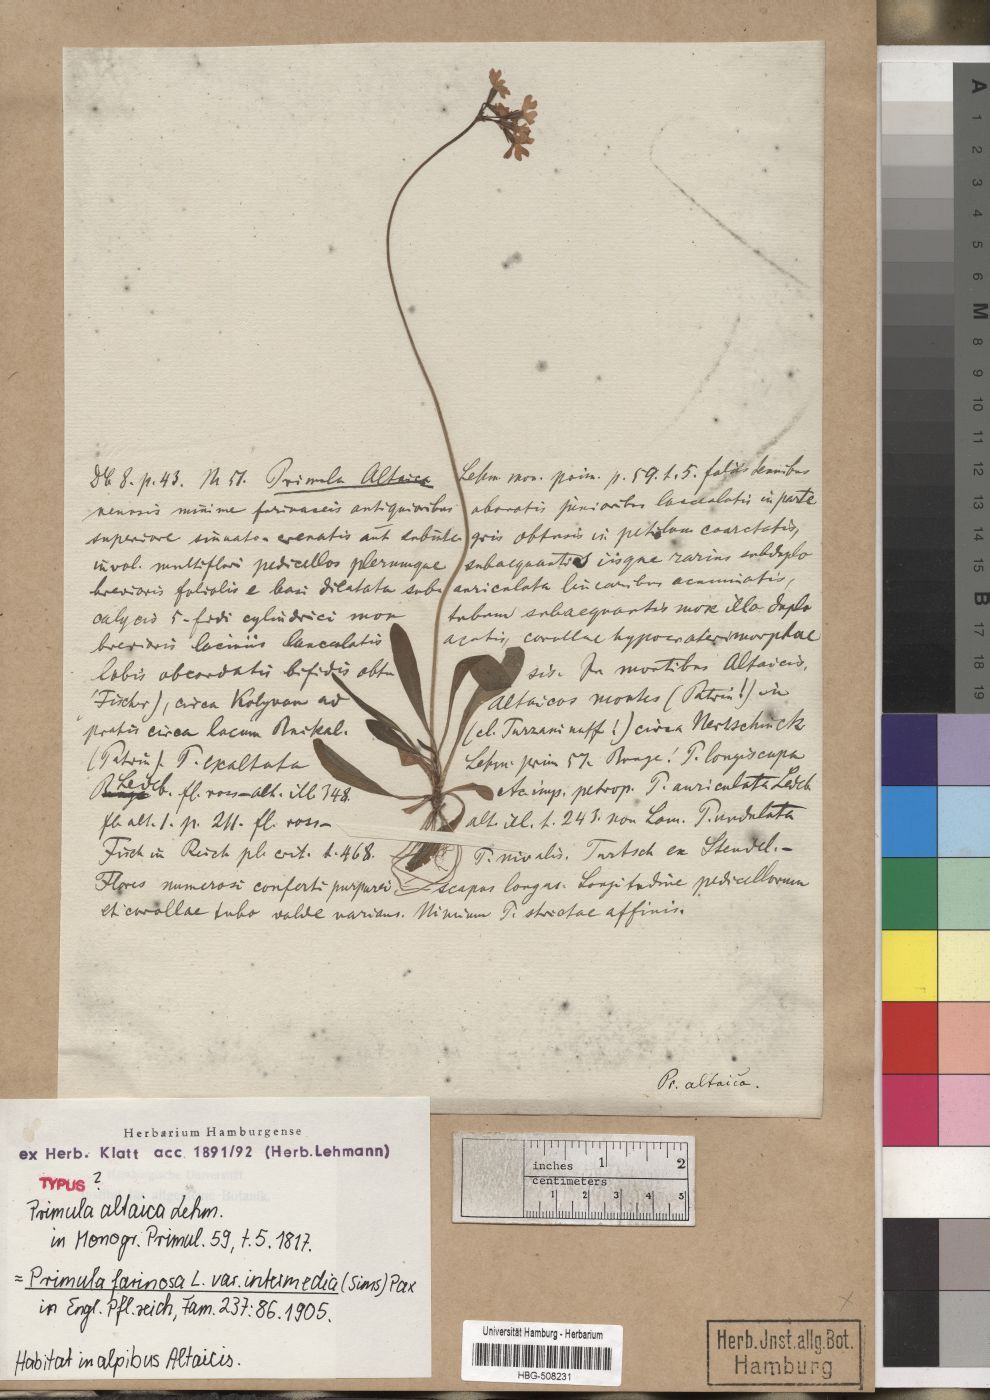 DC 8. p. 43. N. 51. Primula Altaica Lehm. mon. prim. p. 59. t. 5. foliis
minime farinaceis antiquioribus obovatis junioribus lanceolatis in parte
superiore sinuato-crenatis aut subinte- gris obtusis in petiolum coarctatis,
invol. multiflori pedicellos plerumque subaequantis iisque rarius subduplo
brevioris foliolis e basi dilatata sub- auriculata linearibus acuminatis,
calycis 5-fidi cylindrici mox tubum subaequantis mox illo duplo
brevioris laciniis lanceolatis acutis, corollae hypocraterimorphae
lobis obcordatis bifidis obtu sis. In montibus Altaicis.
(Fischer), circa Kolyvan ad Altaicos montes (Patrin!) in
pratis circa lacum Baikal. (cl. Turzaninoff!) circa Nertschinck
(Patrin). P. exaltata Lehm. prim 57. Bunge! P. longiscapa
Ledeb. fl. ross-alt. ill. 348. Ac. imp. petrop. P. auriculata Ledeb
fl. alt. 1. p. 211. fl. ross- alt. ill. t. 243. non Lam. P. undulata
Fisch in Reich pl. crit. t. 468. P. nivalis. Turtsch ex Steudel. -
Flores numerosi conferti purpurei. scapus longus. Longitudine pedicellorum
et corollae tubo valde varians. Nimium P. strictae affinis.
Pr. altaica.
Herbarium Hamburgense
ex Herb. Klatt acc. 1891/92 (Herb. Lehmann)
TYPUS ?
Primula altaica Lehm.
in Monogr. Primul. 59, t. 5. 1817.
= Primula farinosa L. var. intermedia (Sims) Pax
in Engl. Pfl.reich, Fam. 237: 86. 1905.
Habitat in alpibus Altaicis.
inches 1 2
centimeters
1 2 3 4 5
Universität Hamburg - Herbarium
HBG-508231
Herb. Inst. allg. Bot.
Hamburg
A
1
2
3
4
5
6
M
8
9
10
11
12
13
14
15
B
17
18
19